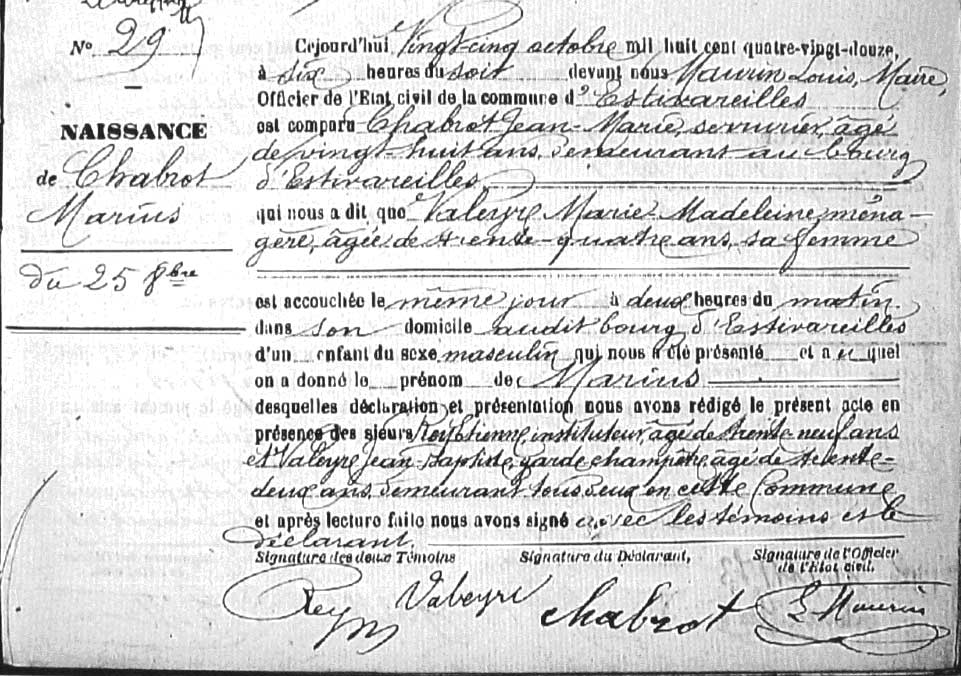 N° 29
NAISSANCE
de Chabrot
Marius
du 25 8bre
Cejourd'hui Vingt-cinq octobre mil huit cent quatre-vingt-douze,
à dix heures du soir devant nous Maurin Louis, Maire,
Officier de l'Etat civil de la commune d'Estivareilles
est comparu Chabrot Jean-Marie, serrurier, âgé
de vingt-huit ans, demeurant au bourg
d'Estivareilles,
qui nous a dit que Valeyre Marie-Madeleine, ména-
gère, âgée de trente-quatre ans, sa femme
est accouchée le même jour à deux heures du matin
dans son domicile audit bourg d'Estivareilles
d'un enfant du sexe masculin qui nous a été présenté et auquel
on a donné le prénom de Marius
desquelles déclaration et présentation nous avons rédigé le présent acte en
présence des sieurs Rey Etienne, instituteur, âgé de trente-neuf ans
et Valeyre Jean-Baptiste, garde champêtre, âgé de trente-
deux ans, demeurant tous deux en cette commune
et après lecture faite nous avons signé avec les témoins et le
déclarant.
Signature des deux Témoins Signature du Déclarant, Signature de l'Officier
de l'Etat civil.
Rey Valeyre Chabrot L. Maurin